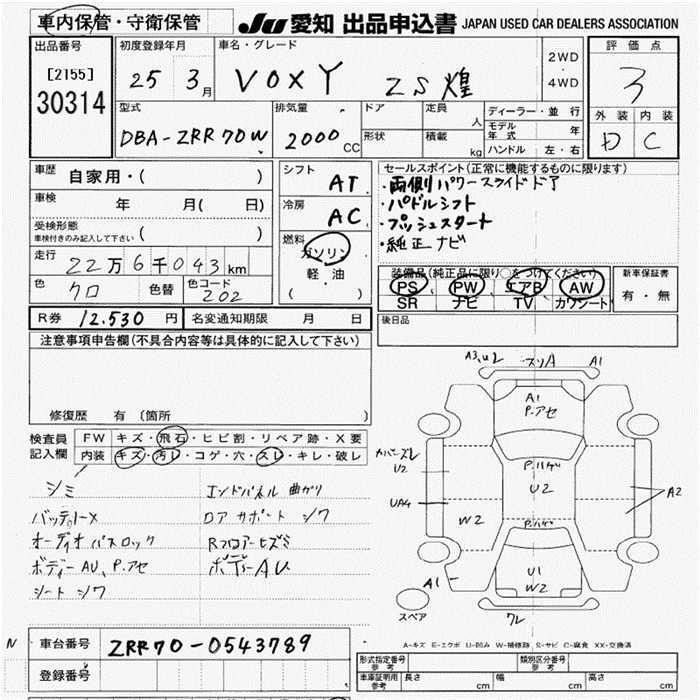 車内保管・守衛保管
JU 愛知 出品申込書 JAPAN USED CAR DEALERS ASSOCIATION
出品番号
[2155]
30314
初度登録年月
25 3月
車名・グレード
VOXY ZS 煌
2WD
・
4WD
評価点
3
外装 内装
D C
型式
DBA-ZRR70W
排気量
2000 CC
ドア
形状
定員 人
積載 kg
ディーラー・並行
モデル年式 年
ハンドル 左・右
車歴 自家用・( )
車検 年 月( 日)
受検形態
車検付きのみ記入して下さい ( )
走行
22万6千043km
色 クロ
色替
色コード 202
シフト AT
冷房 AC
燃料
ガソリン
・
軽・油
( )
セールスポイント(正常に機能するものに限ります)
・両側パワースライドドア
・パドルシフト
・プッシュスタート
・純正ナビ
装備品(純正品に限り○をつけてください)
PS PW エアB AW
SR ナビ TV カワシート
新車保証書
有・無
R券 12,530円
名変通知期限 月 日
後日品
注意事項申告欄(不具合内容等は具体的に記入して下さい)
修復歴 有(箇所 )
検査員
記入欄
FW キズ・飛石・ヒビ割・リペア跡・X要
内装 キズ・汚レ・コゲ・穴・スレ・キレ・破レ
シミ
エンドパネル曲がり
バッテリーX
ロアサポート シワ
オーディオパスロック
Rフロアーヒズミ
ボディーAU、P.アセ
ボディーAU
シート シワ
A3,U2 スリA A1
A1
P.アセ
カバーズレ
U2
P.ハゲ
U2
UA4
A2
W2
P.ハゲ
U1
W2
A1
スペア
ワレ
A-キズ E-エクボ U-凹み W-補修跡 S-サビ C-腐食 XX-交換済
N
車台番号 ZRR70-0543789
登録番号
形式指定番号
参考
類別区分番号
参考
車庫証明用
参考
長さ cm 幅 cm 高さ cm